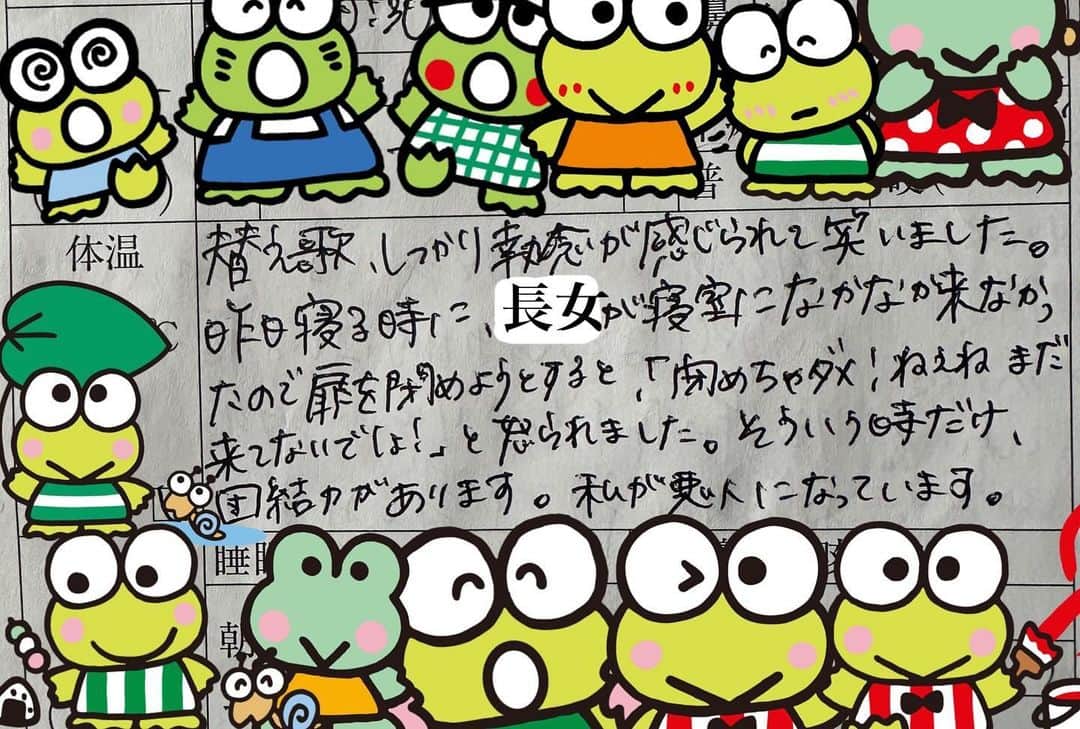 体温
替え歌、しっかり執念が感じられて笑いました。
昨日寝る時に、長女が寝室になかなか来なかっ
たので扉を閉めようとすると、「閉めちゃダメ!ねぇねまだ
来てないでしょ!」と怒られました。そういう時だけ、
団結力があります。私が悪人になっています。
睡
朝